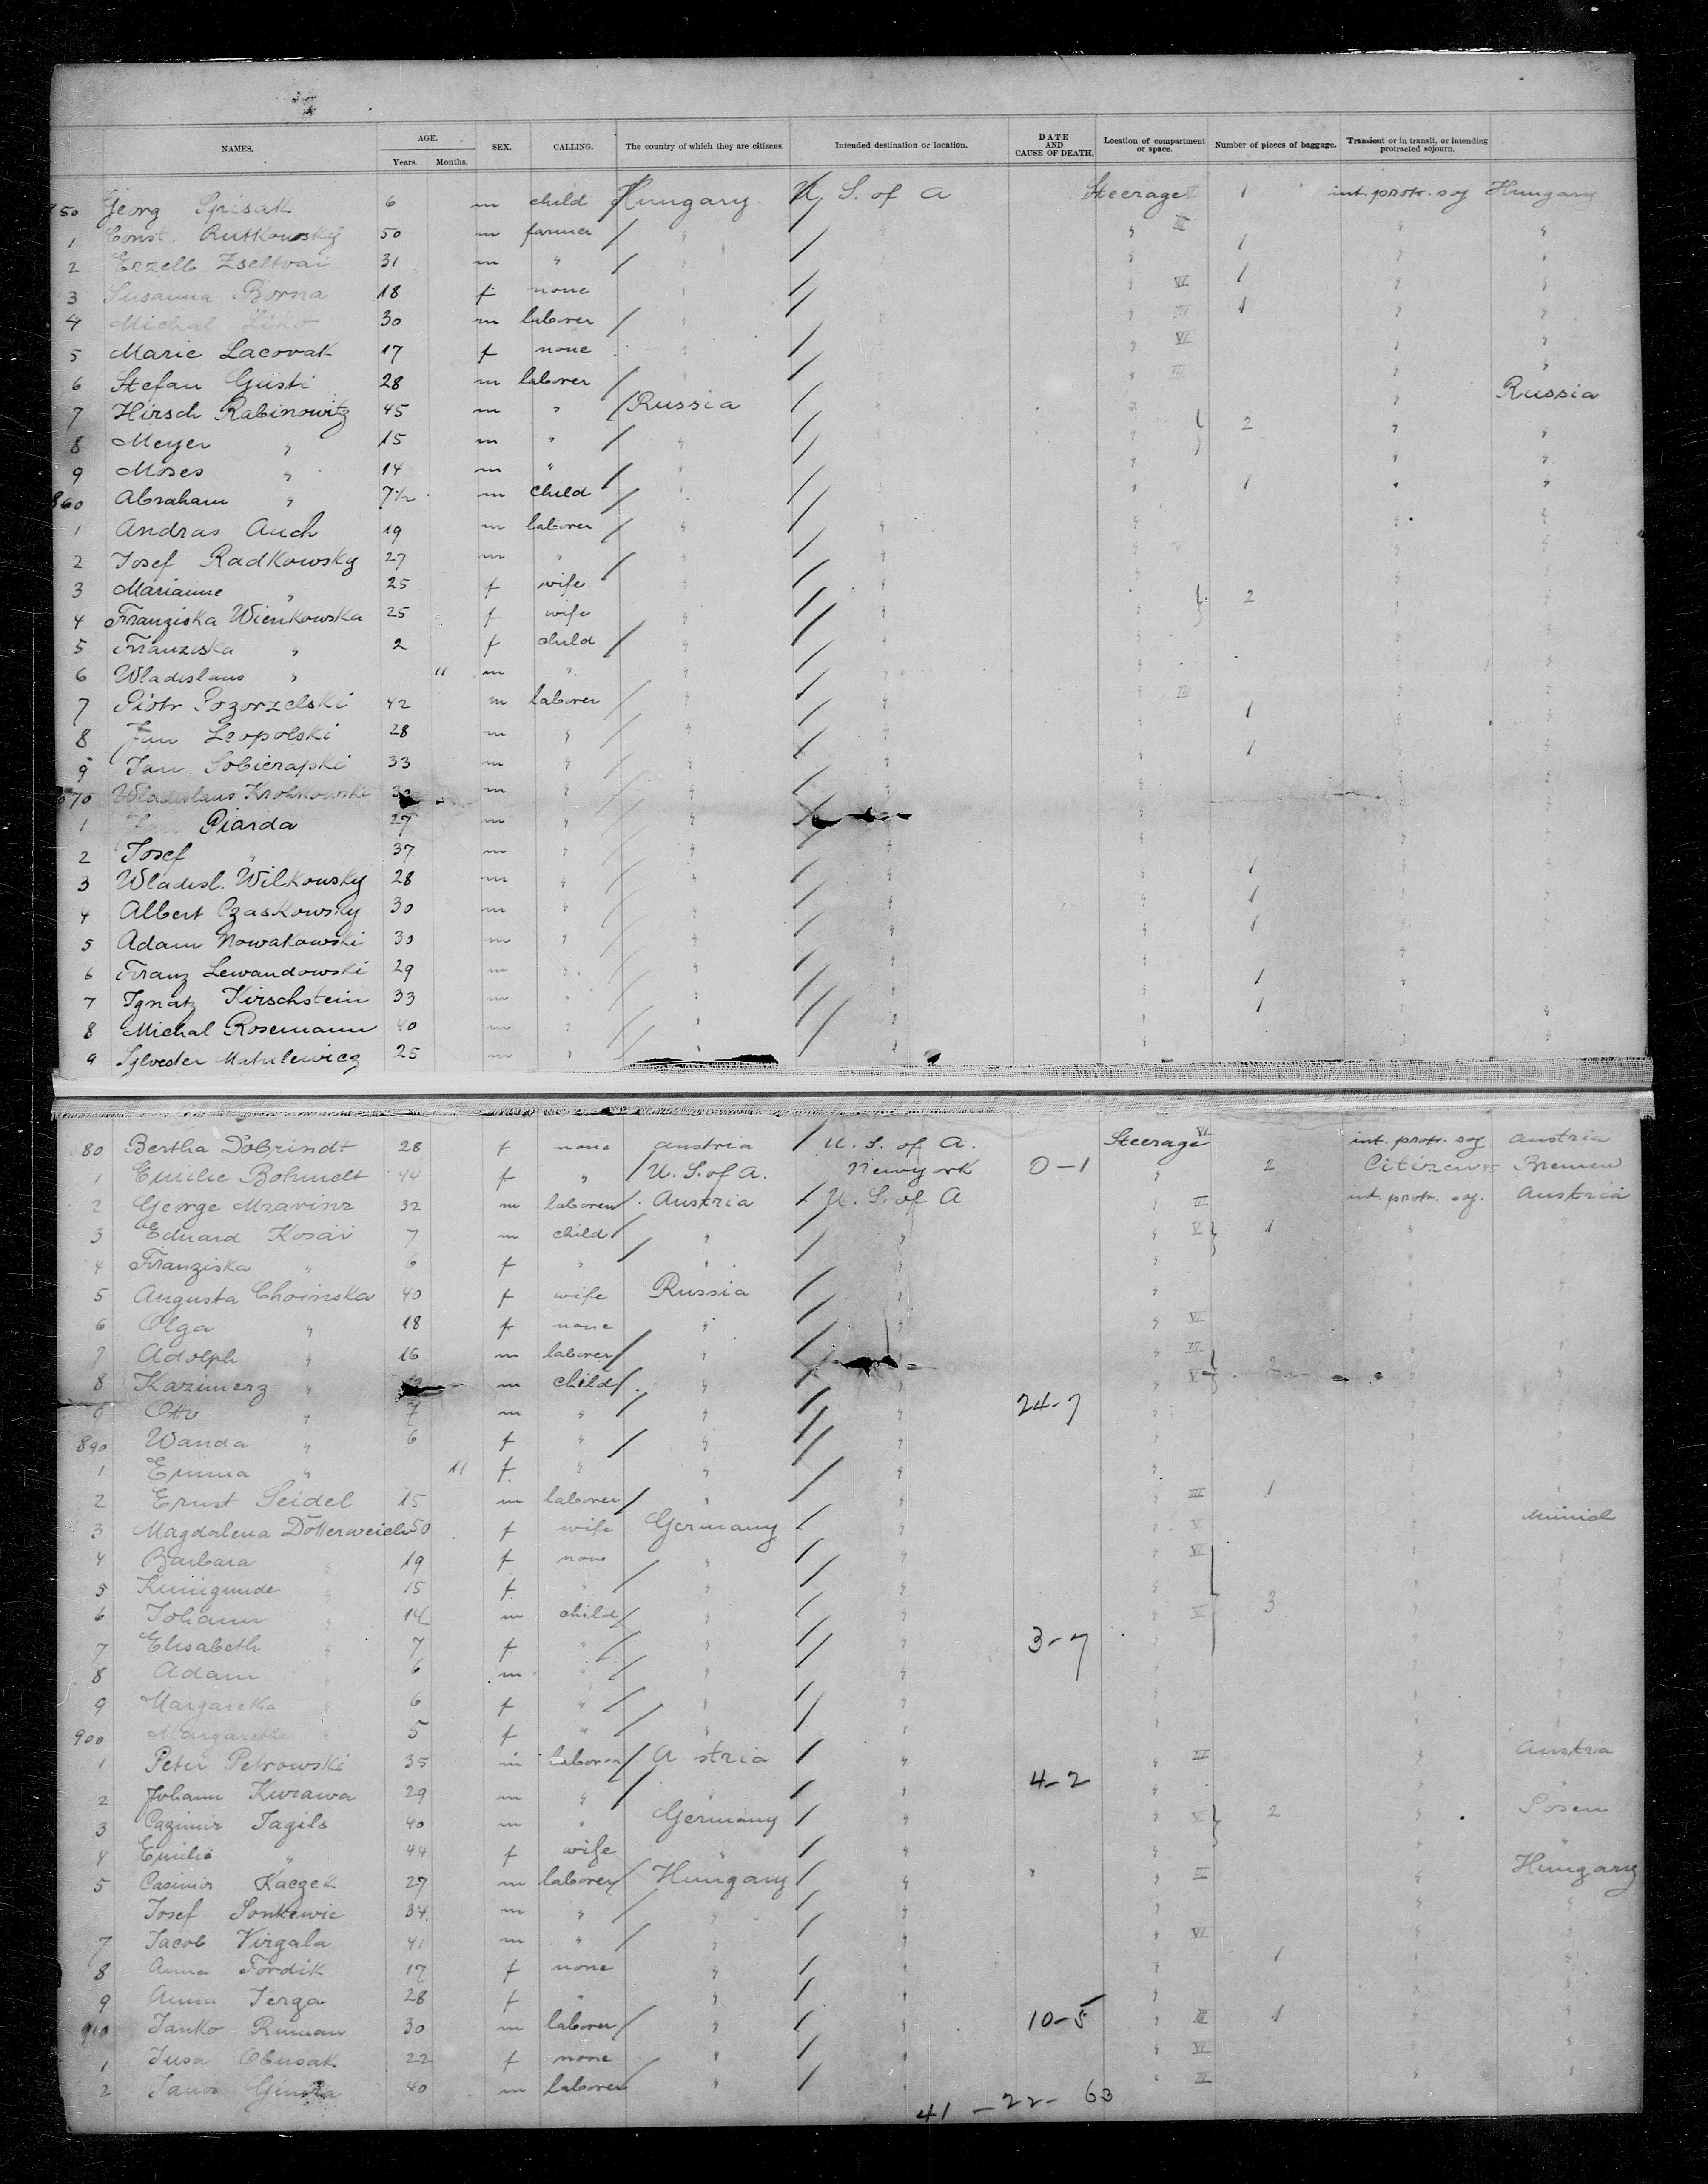 NAMES. AGE. Years. Months. SEX. CALLING. The country of which they are citizens. Intended destination or location. DATE AND CAUSE OF DEATH. Location of compartment or space. Number of pieces of baggage. Transient or in transit, or intending protracted sojourn.
50 Georg Spisak 6 m child Hungary U. S. of A Steerage 1 int. protr. soj Hungary
1 Const. Rutkowsky 50 m farmer " " " III " "
2 Erzelb Zseltvai 31 m " " " " 1 " "
3 Susanna Borna 18 f none " " VI 1 " "
4 Michal Liko 30 m laborer " " III 1 " "
5 Marie Lacovak 17 f none " " VI " "
6 Stefan Gusti 28 m laborer " " III " "
7 Hirsch Rabinowitz 45 m " Russia " " " Russia
8 Meyer " 15 m " " " " 2 " "
9 Moses " 14 m " " " " " "
860 Abraham " 7½ m child " " " 1 " "
1 Andras Auch 19 m laborer " " " " "
2 Josef Radkowsky 27 m " " " " " "
3 Marianne " 25 f wife " " " " "
4 Franziska Wienkowska 25 f wife " " " 2 " "
5 Franziska " 2 f child " " " " "
6 Wladislaus " 11 m " " " " " "
7 Piotr Pogorzelski 42 m laborer " " " III " "
8 Jan Leopolski 28 m " " " " 1 " "
9 Jan Sobierapski 33 m " " " " 1 " "
870 Wladislaus Krohkowski m " " " " "
1 Piarda 27 m " " " "
2 Josef " 37 m " " " " " "
3 Wladisl. Wilkowsky 28 m " " " " 1 " "
4 Albert Czaskowsky 30 m " " " " 1 " "
5 Adam Nowakowski 30 m " " " " 1 "
6 Franz Lewandowski 29 m " " " " "
7 Ignatz Kirschstein 33 m " " " " 1 "
8 Michal Rosemann 40 m " " " " 1 " "
9 Sylvester Matulewicz 25 m " " " " " "
80 Bertha Dobrindt 28 f none Austria U. S. of A. Steerage VI int. protr. soj Austria
1 Emilie Bohmdt 44 f " U. S. of A. Newyork 0-1 " 2 Citizen Bremen
2 George Mravinz 32 m laborer Austria U. S. of A " III int. protr. soj. Austria
3 Eduard Kosar 7 m child " " " V 1 " "
4 Franziska " 6 f " " " " "
5 Augusta Choinska 40 f wife Russia " " " "
6 Olga " 18 f none " " " VI "
7 Adolph " 16 m laborer " " " III " "
8 Kazimerz " m child " " " V " "
9 Otto " 7 m " " " 24-7 " " "
890 Wanda " 6 f " " " " " "
1 Emma " 11 f. " " " " " "
2 Ernst Seidel 15 m laborer " " " III 1 "
3 Magdalena Dotterweich 50 f wife Germany " " V "
4 Barbara " 19 f none " " " VI " "
5 Kunigunde " 15 f " " " " " "
6 Johann " 14 m child " " " V 3 " "
7 Elisabeth " 7 f " " " 3-7 " " "
8 Adam " 6 m " " " " " "
9 Margaretha " 6 f " " " " " "
900 Margarethe " 5 f " " " " " "
1 Peter Petrowski 35 m laborer A stria " " III " Austria
2 Johann Kurawa 29 m " " " 4-2 " " "
3 Cazimir Jagils 40 m " Germany " " V 2 " Posen
4 Emilie " 44 f wife " " " " "
5 Casimir Kaczek 27 m laborer Hungary " " III " Hungary
Josef Sonkewic 34 m " " " " " "
7 Jacob Virgala 41 m " " " " VI " "
8 Anna Fordik 17 f none " " " 1 " "
9 Anna Jerga 28 f " " " " " "
910 Janko Ruman 30 m laborer " " 10-5 " III 1 " "
1 Jusa Obusak 22 f none " " " VI " "
2 Janos 40 m laborer " " " III " "
41 - 22 - 63